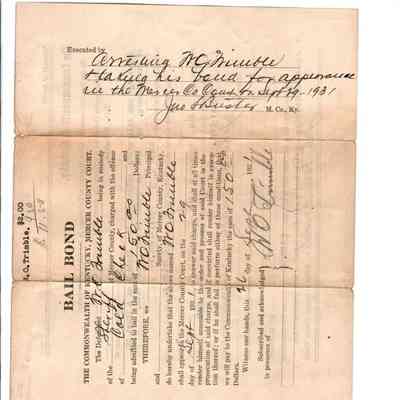 Executed by
Arresting W O Trimble
& taking his bond for appearance
in the Mercer Co Court on Sept 29-1931
M. Co., Ky.
$2.00
W. O. Trimble,
BAIL BOND
THE COMMONWEALTH OF KENTUCKY, MERCER COUNTY COURT.
The Defendant W O Trimble being in custody
of Sheriff of Mercer County, charged with the offense
of Cold Check and
being admitted to bail in the sum of $150.00 Dollars;
THEREFORE, we W O Trimble Principal
and Surety of Mercer County, Kentucky,
do hereby undertake that the above named W O Trimble
shall appear in the Mercer County Court, on the 29
day of Sept 1931 to answer said charge, and shall at all times
render himself amenable to the order and process of said Court in the
prosecution of said charge, and if convicted shall render himself in execution
thereof; or if he shall fail to perform either of these conditions, that
we will pay to the Commonwealth of Kentucky the sum of 150.00
Dollars.
Witness our hands, this 26 day of Sept 1931
Subscribed and acknowledged
in presence of
W O Trimble